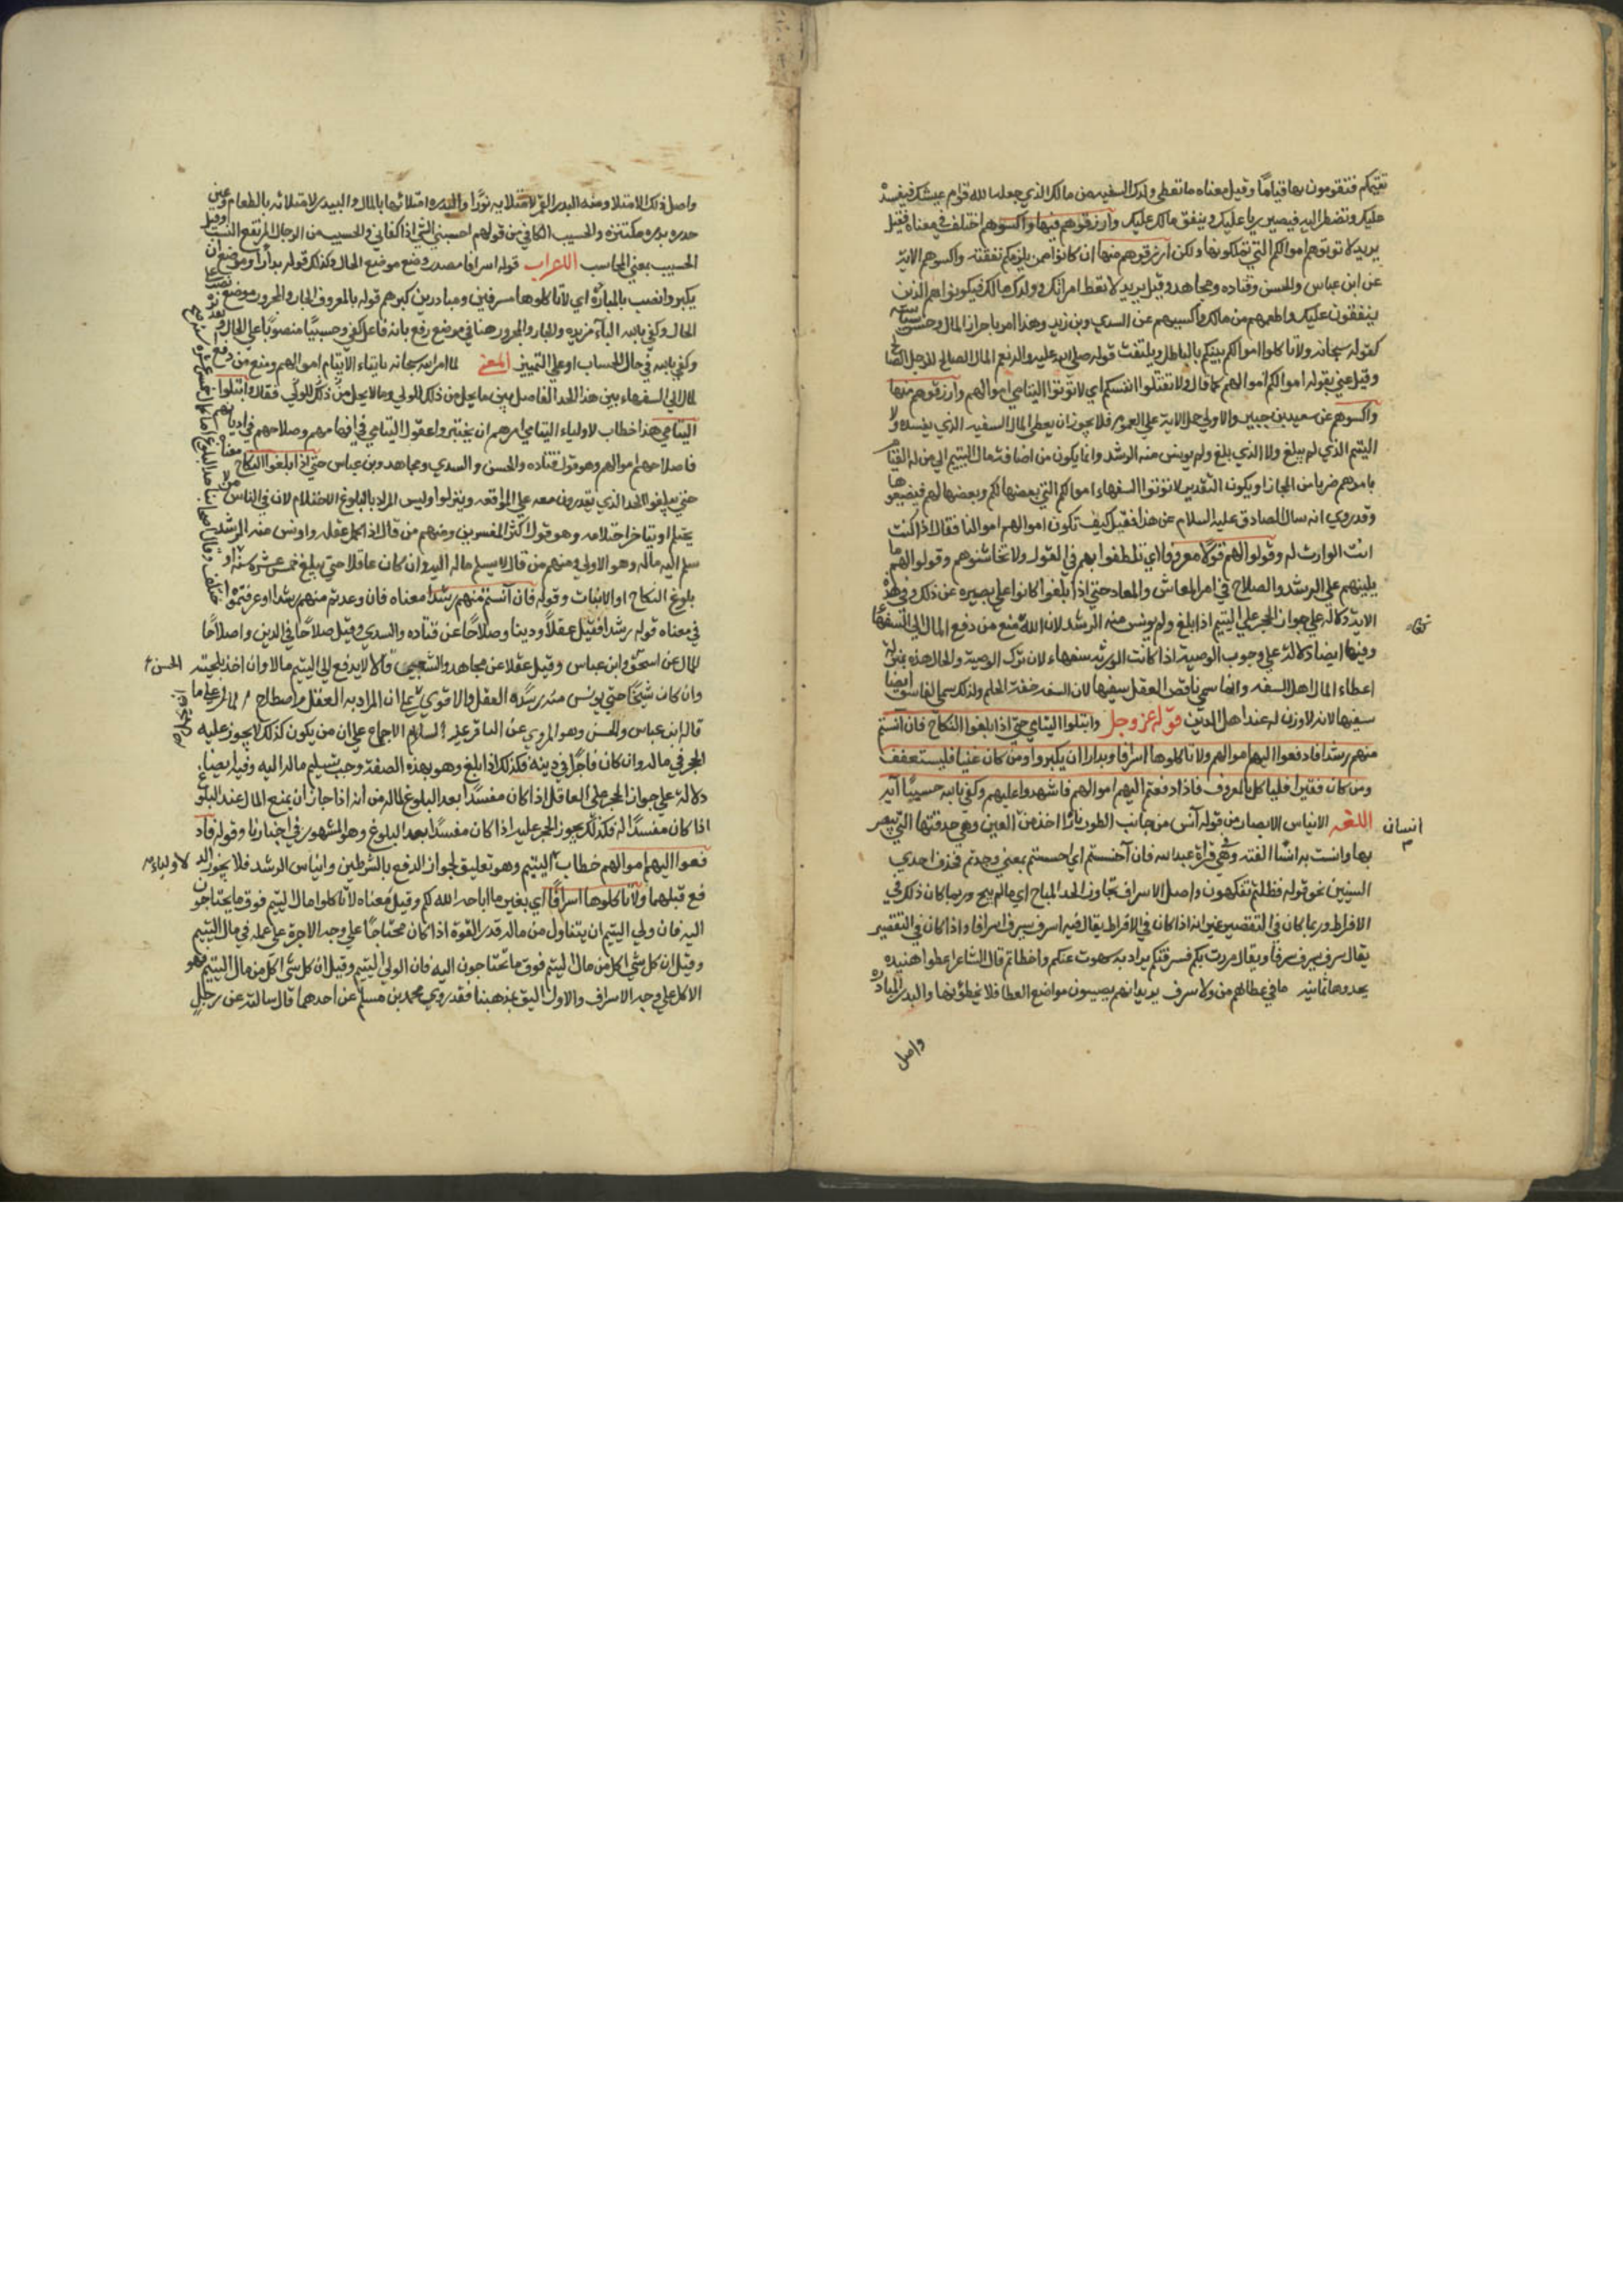 تقيمكم فتقومون بها قياما وقيل معناه ما تعطي ولدك السفيه من مالك الذي جعله الله قوام عيشك فيفسده
عليك وتضطر اليه فيصير ربا عليك وينفق مالك عليك وارزقوهم فيها واكسوهم اختلف في معناه فقيل
يريد لا تؤتوهم اموالكم التي تملكونها ولكن ارزقوهم منها ان كانوا ممن يلزمكم نفقته واكسوهم الاية
عن ابن عباس والحسن وقتاده ومجاهد وقيل يريد لا تعط امراتك وولدك مالك فيكونوا هم الذين
ينفقون عليك واطعمهم من مالك واكسهم عن السدي وبن زيد وهذا امر باحراز المال وحسن سياسته
كقوله سبحانه ولا تاكلوا اموالكم بينكم بالباطل ويلتفت قوله صلى الله عليه واله نعم المال الصالح للرجل الصالح
وقيل عني بقوله اموالكم اموالهم كما قال ولا تقتلوا انفسكم اي لا تؤتوا اليتامي اموالهم وارزقوهم منها
واكسوهم عن سعيد بن جبير والاولي حمل الاية علي العموم فلا يجوز ان يعطي المال السفيه الذي يفسده ولا
اليتيم الذي لم يبلغ ولا الذي بلغ ولم يونس منه الرشد وانما يكون من اضافة مال اليتيم الي من له القيام
بامرهم ضربا من المجاز او يكون التقدير لا تؤتوا السفهاء اموالكم التي بعضها لكم وبعضها لهم فيضيعوها
وقد روي انه سال الصادق عليه السلام عن هذا فقيل كيف تكون اموالهم اموالنا فقال اذا كنت
انت الوارث له وقولوا لهم قولا معروفا اي تلطفوا بهم في القول ولا تخاشنوهم وقولوا لهم ما
ينبههم علي الرشد والصلاح في امر المعاش والمعاد حتي اذا بلغوا كانوا علي بصيره عن ذلك وفي هذه
الاية دلاله علي جواز الحجر علي اليتيم اذا بلغ ولم يونس منه الرشد لان الله منع من دفع المال الي السفهاء
وفيها ايضا دلالة علي وجوب الوصية اذا كانت الورثه سفهاء لان ترك الوصية والحال هذه بمنزلة
اعطاء المال اهل السفه وانما سمي ناقص العقل سفيها لان السفه خفة الحلم ولذلك سمي الفاسق ايضا
سفيها لانه لا وزن له عند اهل الدين قوله عز وجل وابتلوا اليتامي حتي اذا بلغوا النكاح فان آنستم
منهم رشدا فادفعوا اليهم اموالهم ولا تاكلوها اسرافا وبدارا ان يكبروا ومن كان غنيا فليستعفف
ومن كان فقيرا فلياكل بالمعروف فاذا دفعتم اليهم اموالهم فاشهدوا عليهم وكفي بالله حسيبا آية
اللغه الايناس الابصار من قوله آنس من جانب الطور نارا اخذ من انسان العين وهي حدقتها التي يبصر
بها وانست به انسا الفته وفي قراة عبد الله فان آحستم اي احسستم بمعني وجدتم فحذف احدي
السينين نحو قوله فظلتم تفكهون واصل الاسراف تجاوز الحد المباح اي ما لم يبح وربما كان ذلك في
الافراط وربما كان في التقصير غير انه اذا كان في الافراط يقال فيه اسرف يسرف اسرافا واذا كان في التقصير
يقال سرف يسرف سرفا ويقال مررت بكم فسرفتكم يراد به سهوت عنكم واخطاتم قال الشاعر اعطوا هنيده
يحدوها ثمانيه ما في عطائهم من ولا سرف يريد انهم يصيبون مواضع العطا فلا يخطؤنها والبدار المبادره
واصل
واصل ذلك الامتلا ومنه البدر القمر لامتلايه نورا والبدره امتلائها بالمال والبيدر لامتلائه بالطعام وعين
حدره بدره مكتنزه والحسيب الكافي من قولهم احسبني الشي اذا كفاني والحسيب من الرجال المرتفع النسب وقيل
الحسيب بمعني المحاسب الاعراب قوله اسرافا مصدر وضع موضع الحال وكذلك قوله بدارا وموضع ان
يكبروا نصب بالمبادرة اي لا تاكلوها مسرفين ومبادرين كبرهم قوله بالمعروف الجار والمجرور موضعه نصب علي
الحال وكفي بالله الباء مزيده والجار والمجرور هنا في موضع رفع بانه فاعل كفي وحسيبا منصوبا علي الحال
وكفي بالله في حال الحساب او علي التمييز المعني لما امر الله سبحانه بايتاء الايتام اموالهم ومنع من دفع
المال الي السفهاء بين هذا الحد الفاصل بين ما يحل من ذلك للولي وما لا يحل من ذلك للولي فقال وابتلوا
اليتامي هذا خطاب لاولياء اليتامي امرهم ان يختبروا عقول اليتامي في افهامهم وصلاحهم في اديانهم
فاصلاحهم اموالهم وهو قول قتاده والحسن والسدي ومجاهد وبن عباس حتي اذا بلغوا النكاح معناه
حتي يبلغوا الحد الذي يقدرون معه علي المواقعه وينزلوا وليس المراد بالبلوغ الاحتلام لان في الناس من لا
يحتلم او يتاخر احتلامه وهو قول اكثر المفسرين ومنهم من قال اذا كمل عقله واونس منه الرشد
سلم اليه ماله وهو الاولي ومنهم من قال لا يسلم ماله اليه وان كان عاقلا حتي يبلغ خمس عشرة سنة او
بلوغ النكاح او الانبات وقوله فان آنستم منهم رشدا معناه فان وجدتم منهم رشدا او عرفتموه
في معناه قوله رشدا فقيل عقلا ودينا وصلاحا عن قتاده والسدي وقيل صلاحا في الدين واصلاحا
للمال عن الحسن وابن عباس وقيل عقلا عن مجاهد والشعبي قالا لا يدفع الي اليتيم مالا وان اخذ بلحيته
وان كان شيخا حتي يونس منه رشده العقل والاقوي ان المراد به العقل واصلاح المال علي ما
قاله ابن عباس والحسن وهو المروي عن الباقر عليه السلام الاجماع علي ان من يكون كذلك لا يجوز عليه
الحجر في ماله وان كان فاجرا في دينه فكذلك اذا بلغ وهو بهذه الصفة وجب تسليم ماله اليه وفيه ايضا
دلالة علي جواز الحجر علي العاقل اذا كان مفسدا بعد البلوغ لماله من انه اذا جاز ان يمنع المال عند البلوغ
اذا كان مفسدا له فكذلك يجوز الحجر عليه اذا كان مفسدا بعد البلوغ وهو المشهور في اخبارنا وقوله فاد
فعوا اليهم اموالهم خطاب لاولياء اليتيم وهو تعليق لجواز الدفع بالشرطين وايناس الرشد فلا يجوز الد
فع قبلهما ولا تاكلوها اسرافا اي بغير ما اباحه الله لكم وقيل معناه لا تاكلوا مال اليتيم فوق ما يحتاجون
اليه فان ولي اليتيم ان يتناول من ماله قدر القوة اذا كان محتاجا علي وجه الاجرة علي عمله في مال اليتيم
وقيل ان كل شي اكل من مال اليتيم فوق ما يحتاجون اليه فان الولي اليتيم وقيل ان كل شي اكل من مال اليتيم فهو
الاكل علي وجه الاسراف والاول اليق بمذهبنا فقد روي محمد بن مسلم عن احدهما قال سالته عن رجل